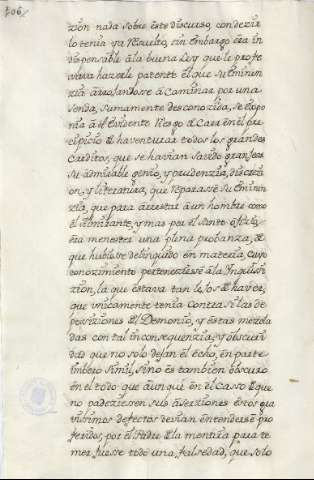 406
cion nada sobre este discurso, con decir
lo tenia ya resuelto, sin embargo era in
dispensable â la buena Ley que le profe
sava hazerle patente el que su Eminen
zia arrojandose â Caminar por una
senda, sumamente desconozida, se expo
nia â el evidente riesgo de Caer en el pre
cipicio de haventurar todos los grandes
Creditos, que se havian savido grangear
su admirable genio, y prudenzia, discrezi
on, y literatura, que reparase su Eminen
zia, que para arrestar â un hombre como
el Almirante, y mas por el Santo oficio,
era menester una plena probanza, de
que hubiese delinquido en materia, cuyo
conozimiento perteneziese â la Inquisi
zion, la que estava tan lejos de haver,
que unicamente tenia contra si las de
posiziones del Demonio, y estas mezcla
das con tal inconsequenzia, y obscuri
dad que no solo dejan el echo, en parte
imbero simil, sino es tambien obscuro
en el todo que aunque en el Caso de que
no padeziesen sus aserziones estos gra
visimos defectos devian entenderse pro
feridos, por el Padre de la mentira para te
mer fuese todo una falsedad, que solo